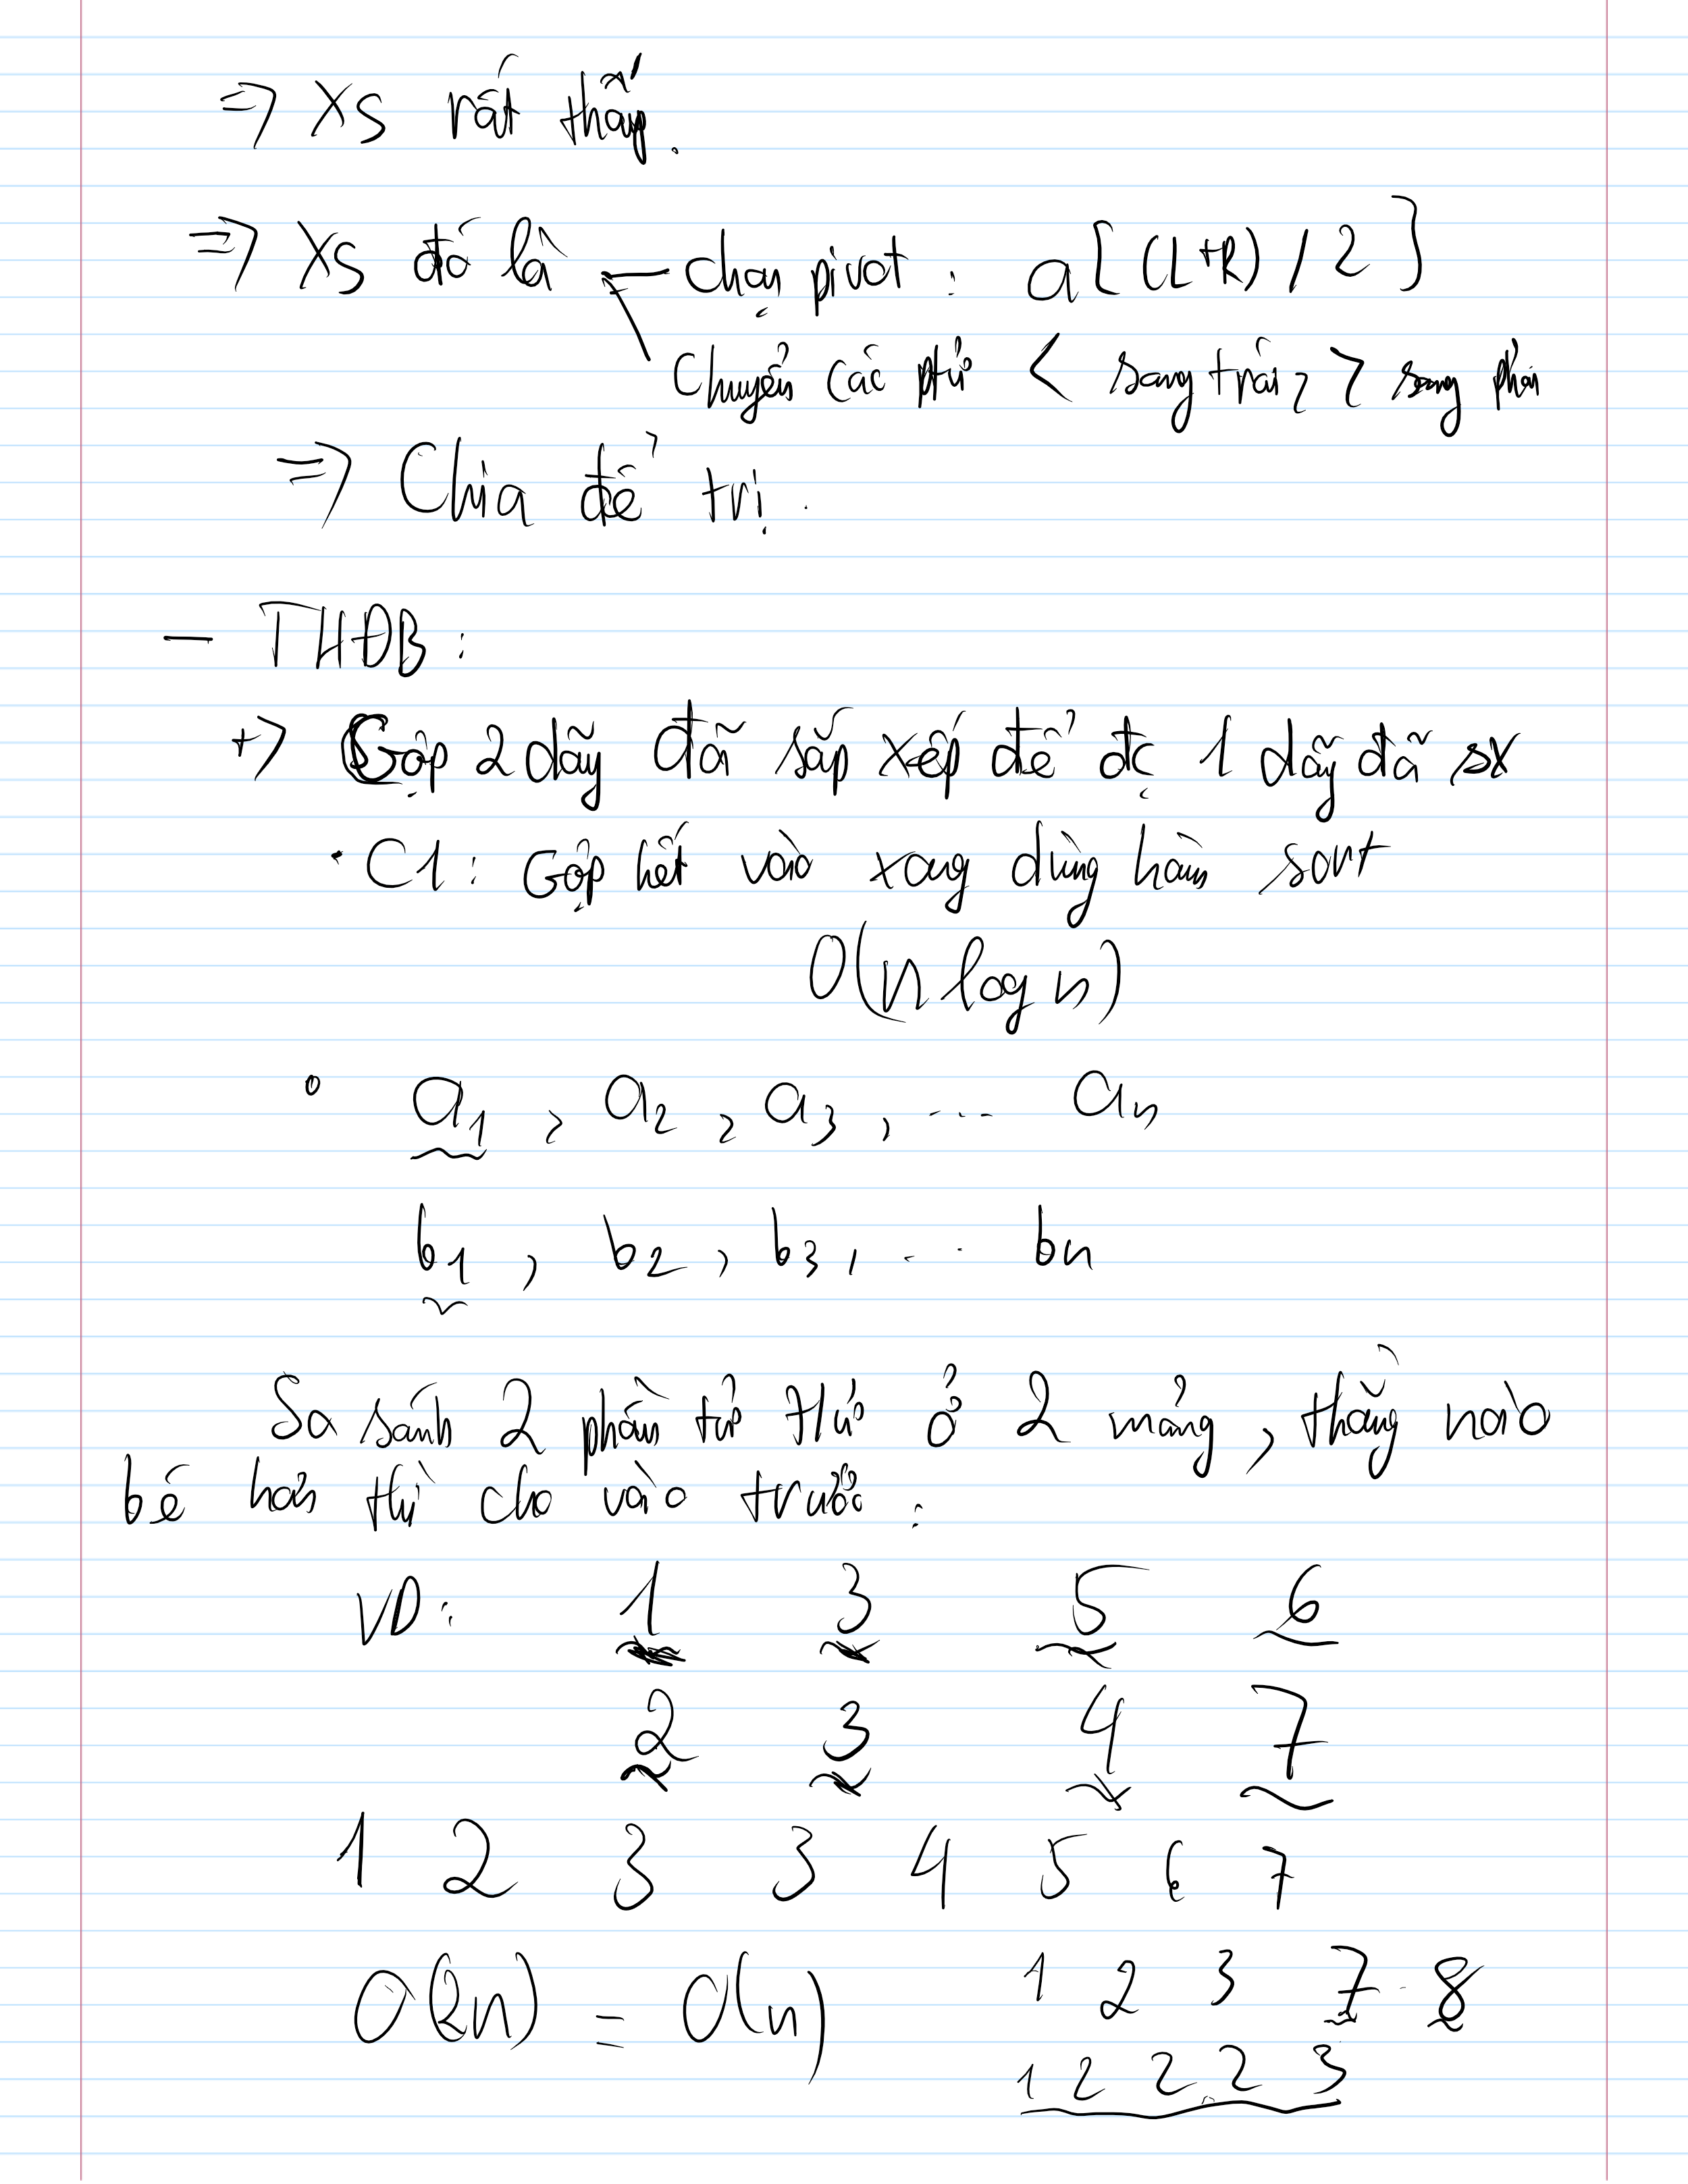 => XS rất thấp.
=> XS đó là - chọn pivot : a[(L+R)/2]
Chuyển các ptử < sang trái, > sang phải
=> Chia để trị.
- THĐB:
+> Gộp 2 dãy đã sắp xếp để đc 1 dãy đã sx
· C1: Gộp hết vào xong dùng hàm sort
O(n log n)
° a1, a2, a3, ... an
b1, b2, b3, ... bn
So sánh 2 phần tử thứ ở 2 mảng, thằng nào
bé hơn thì cho vào trước:
VD: 1 3 5 6
2 3 4 7
1 2 3 3 4 5 6 7
O(2n) = O(n) 1 2 3 7 8
1 2 2 2 3